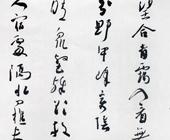 望合青靄入看無
分野中峰變陰
晴衆壑殊欲投
人宿處隔水問樵夫